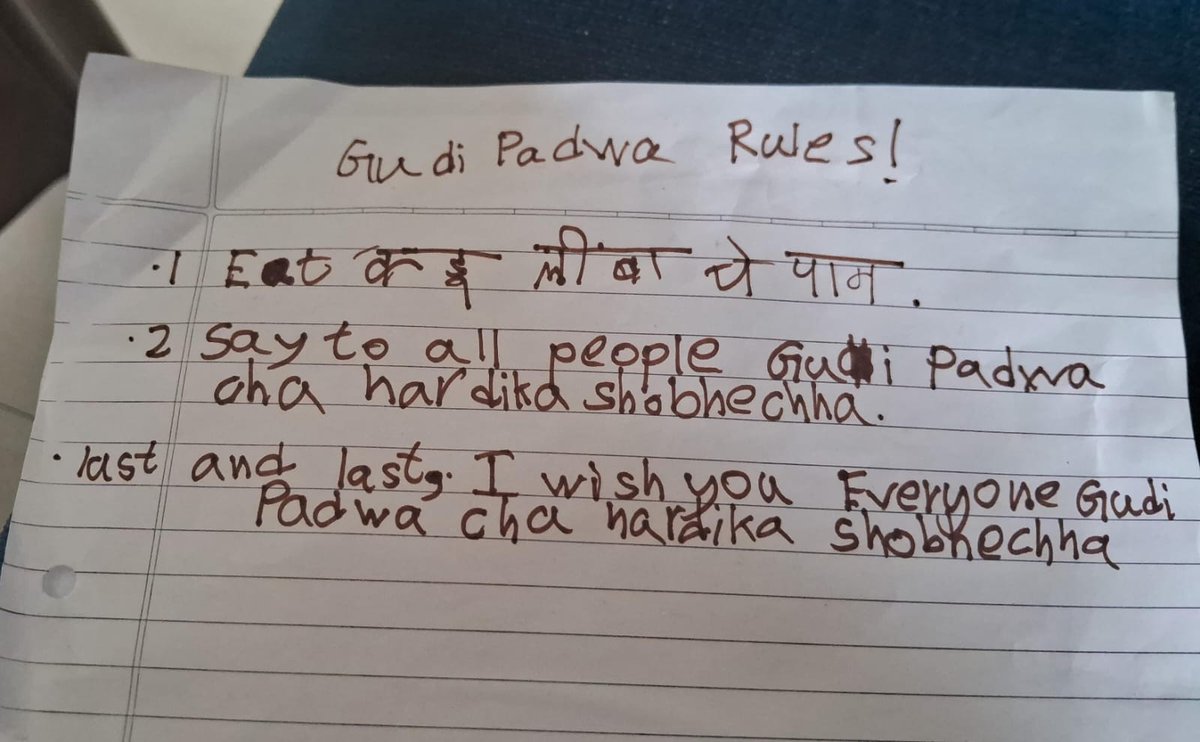 Gudi Padwa Rules!
.1 Eat कडू लींबा चे पान.
.2 Say to all people Gudi Padwa
cha hardika shobhechha.
. last and last, I wish you Everyone Gudi
Padwa cha hardika shobhechha